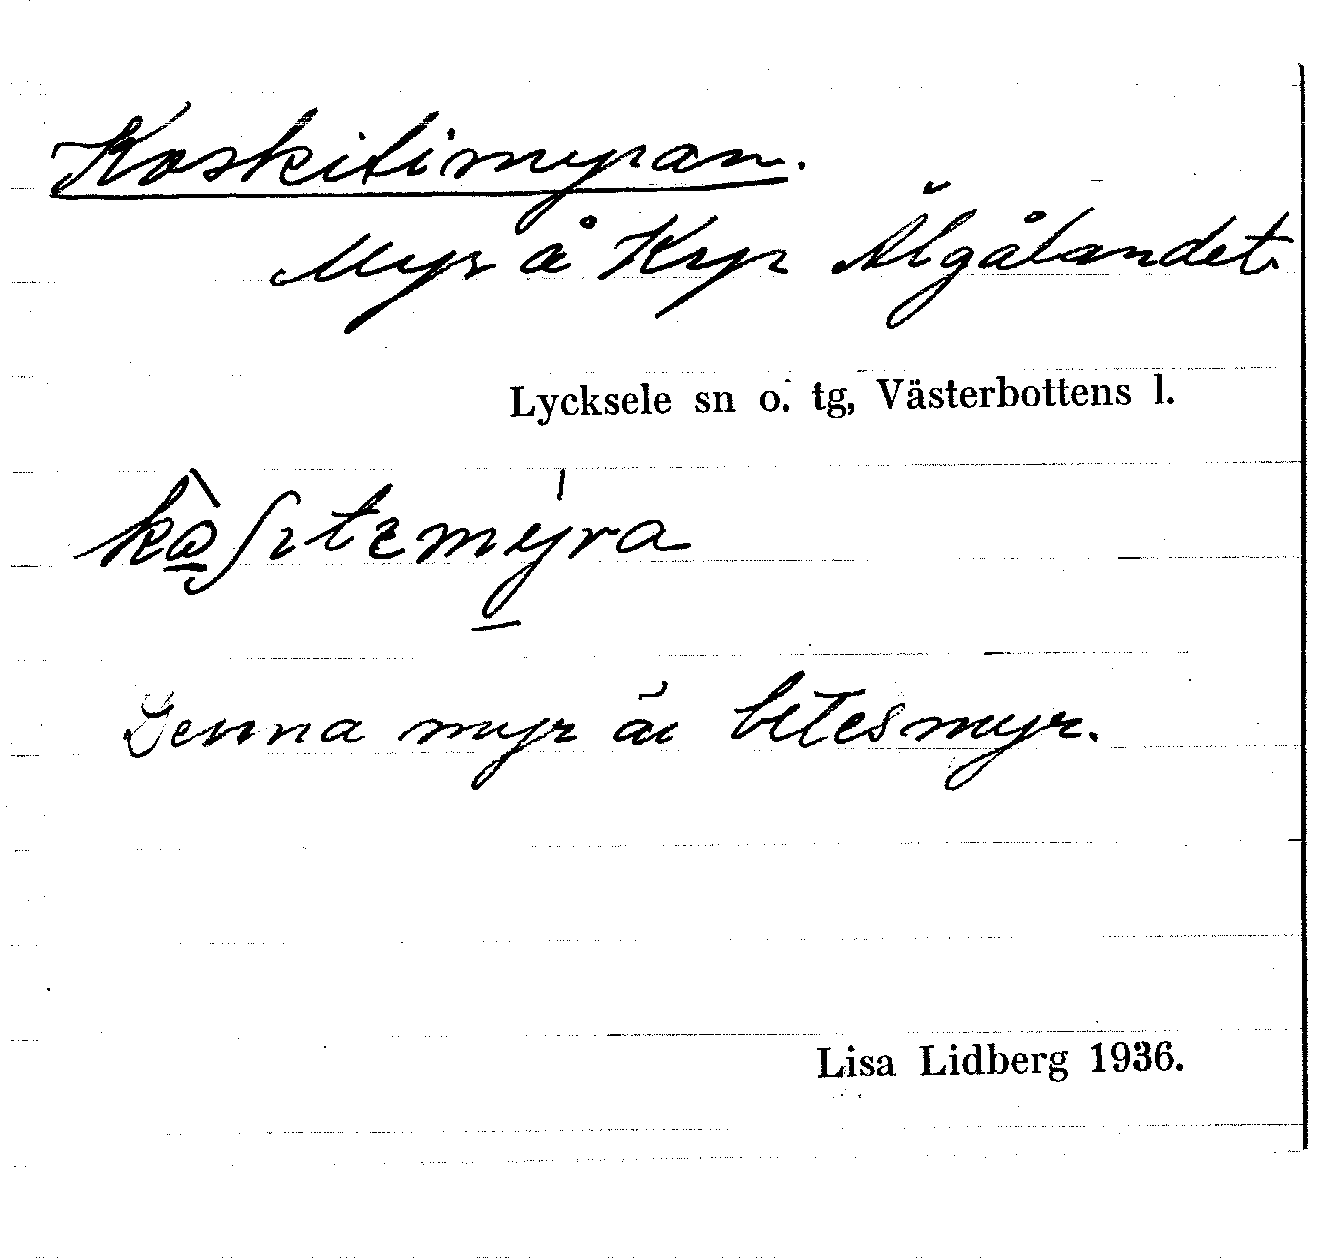 Koskitimyran.
Myr å Krp Älgålandet
Lycksele sn o. tg, Västerbottens l.
Denna myr är betesmyr.
Lisa Lidberg 1936.